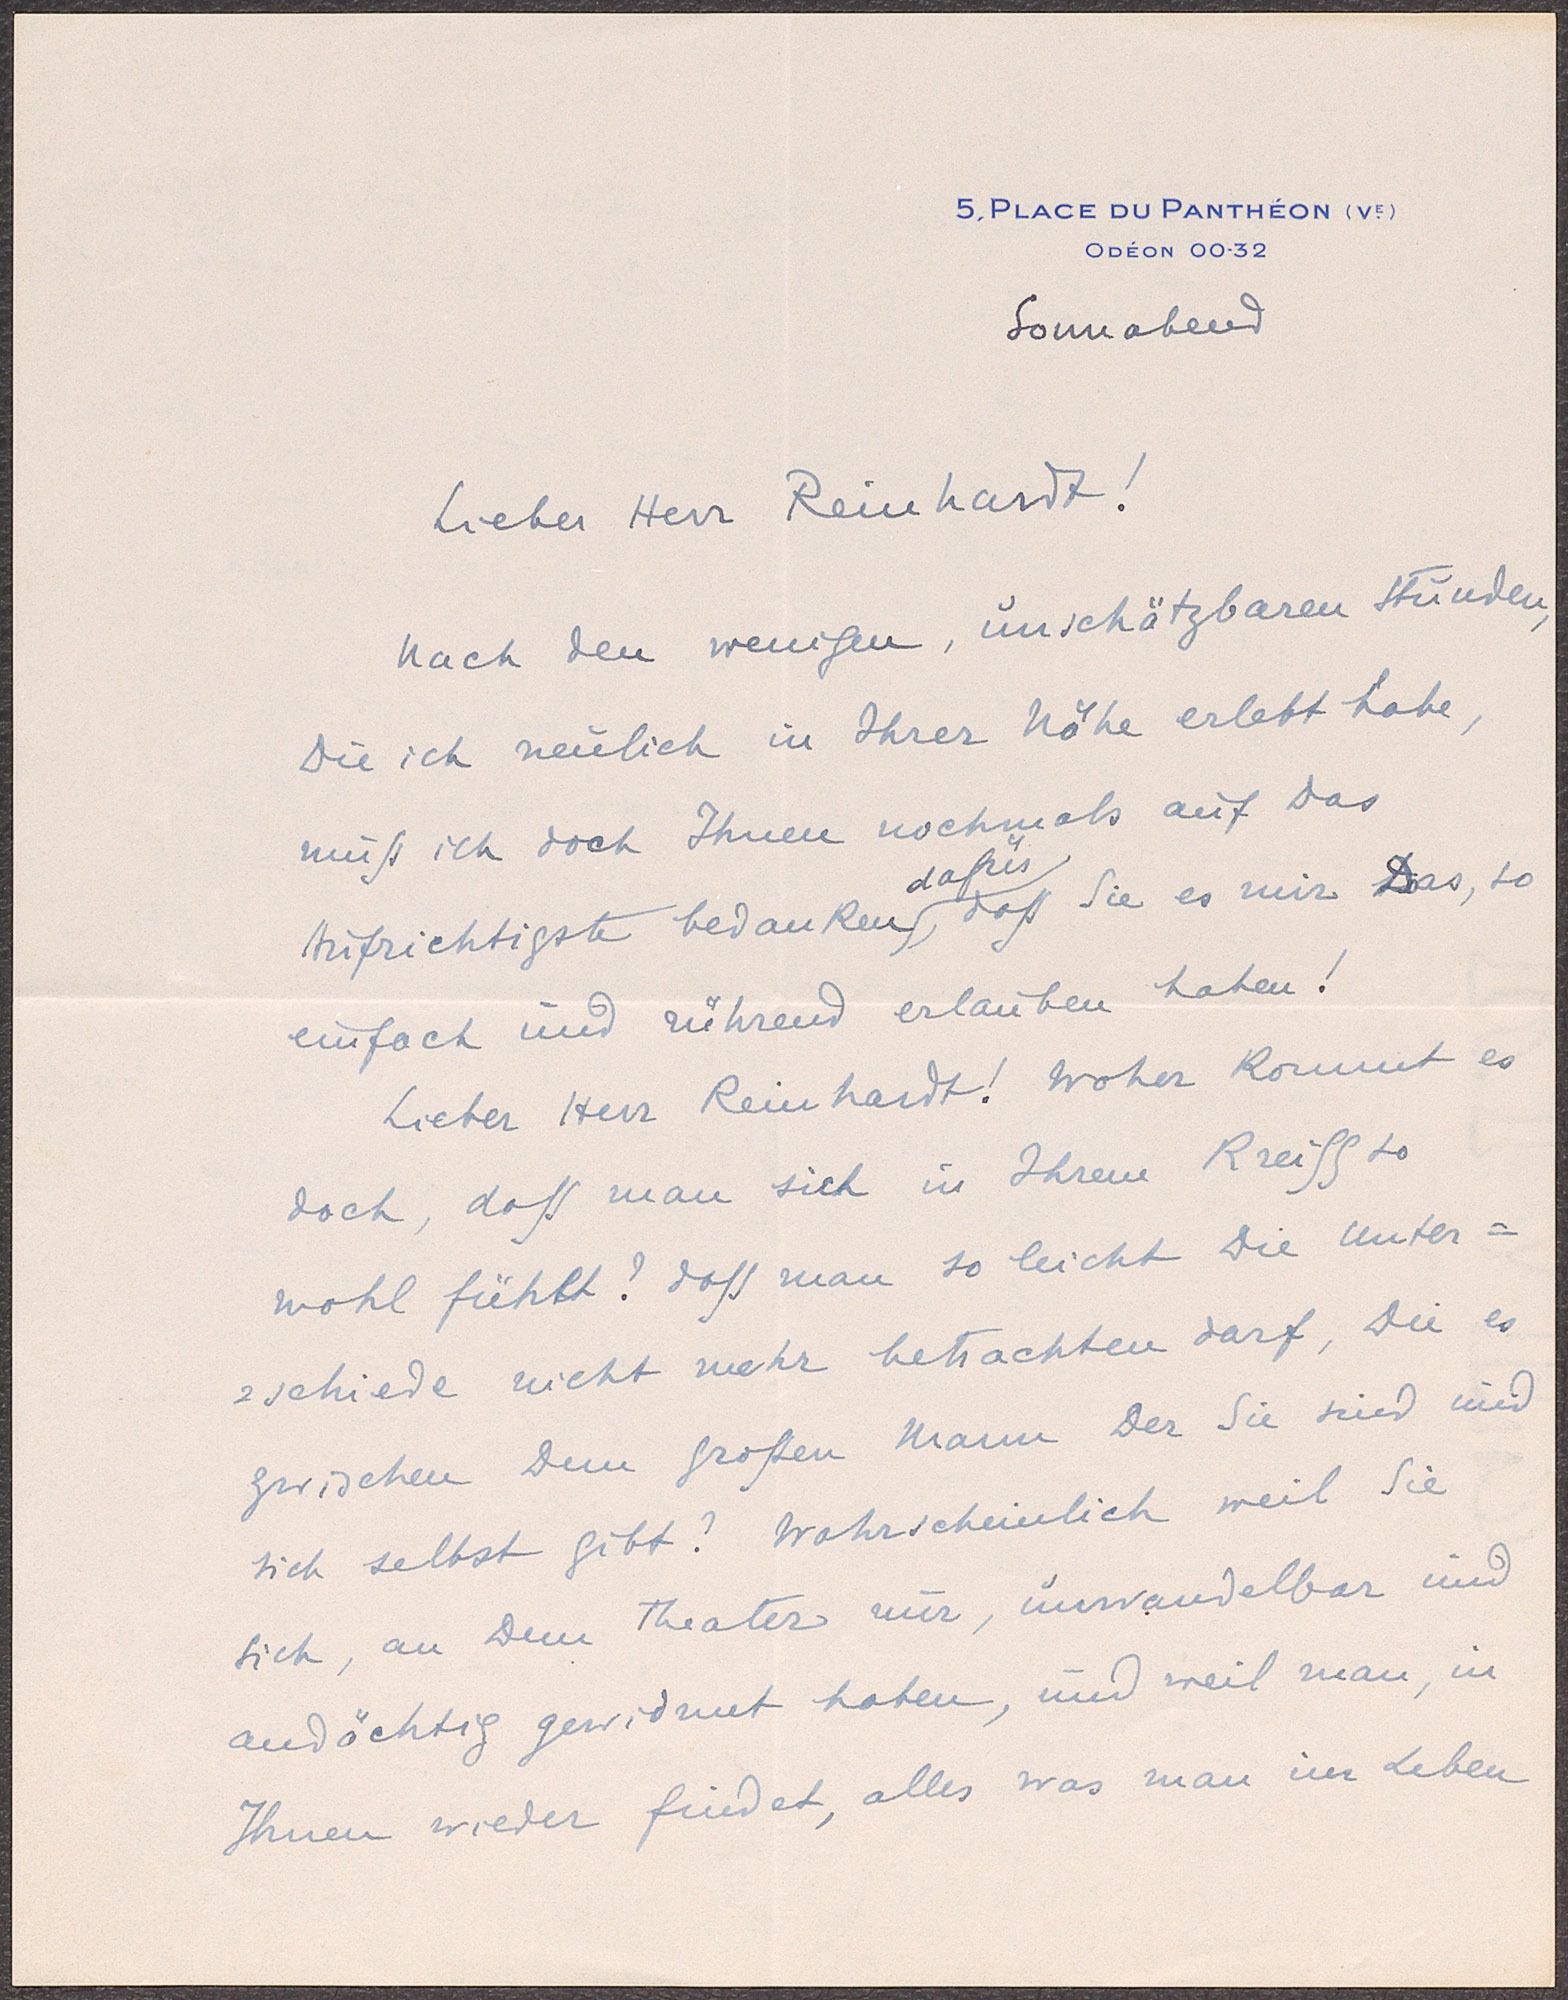 5, PLACE DU PANTHÉON (VE)
ODÉON 00-32
Sonnabend
Lieber Herr Reinhardt!
Nach den wenigen, unschätzbaren Stunden,
Die ich neulich in Ihrer Nähe erlebt habe,
muß ich doch Ihnen nochmals auf Das
dafür
Aufrichtigste bedanken, daß Sie es mir Das, so
einfach und rührend erlauben haben!
Lieber Herr Reinhardt! Woher kommt es
doch, daß man sich in Ihrem Kreiß so
wohl fühlt? daß man so leicht Die Unter=
=schiede nicht mehr betrachten darf, Die es
zwischen Dem großen Mann Der Sie sind und
sich selbst gibt? Wahrscheinlich weil Sie
sich, an Dem Theater nur, unwandelbar und
andächtig gewidmet haben, und weil man, in
Ihnen wieder findet, alles was man im Leben